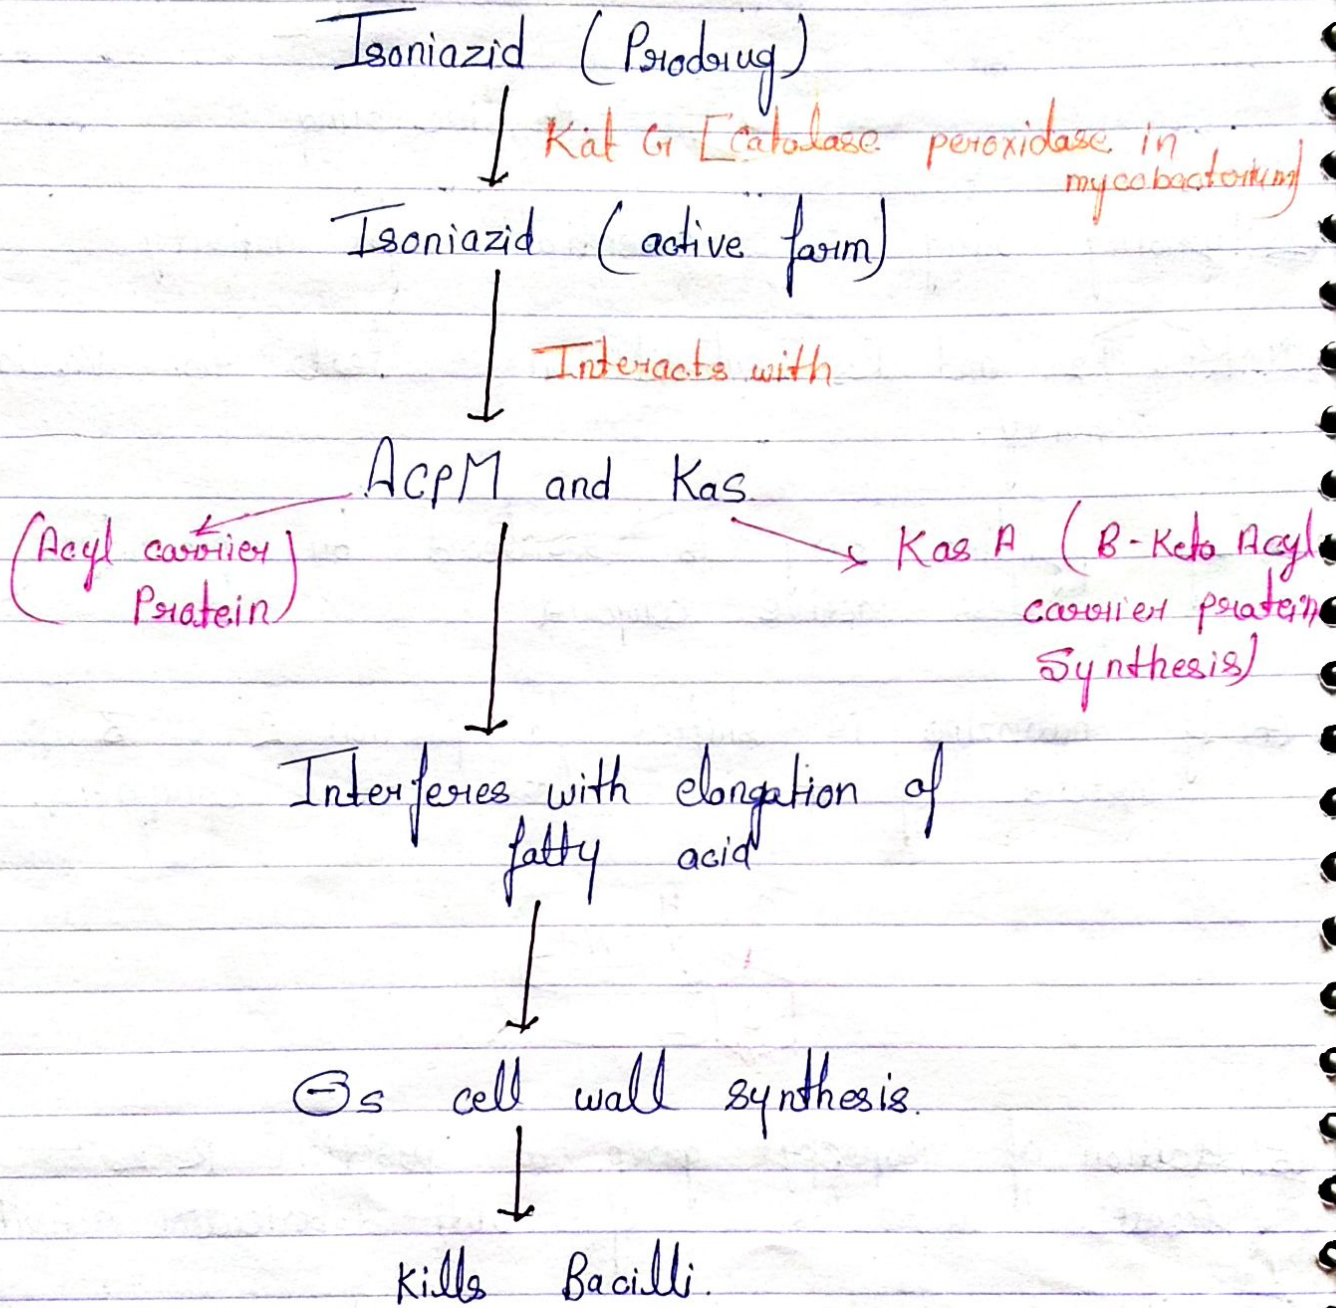 Isoniazid (Prodrug)
Kat G [Catalase peroxidase in
mycobacterium]
Isoniazid (active form)
Interacts with
AcpM and Kas
(Acyl carrier
Protein)
Kas A (B-Keto Acyl
carrier protein
Synthesis)
Interferes with elongation of
fatty acid
⊖s cell wall synthesis.
Kills Bacilli.